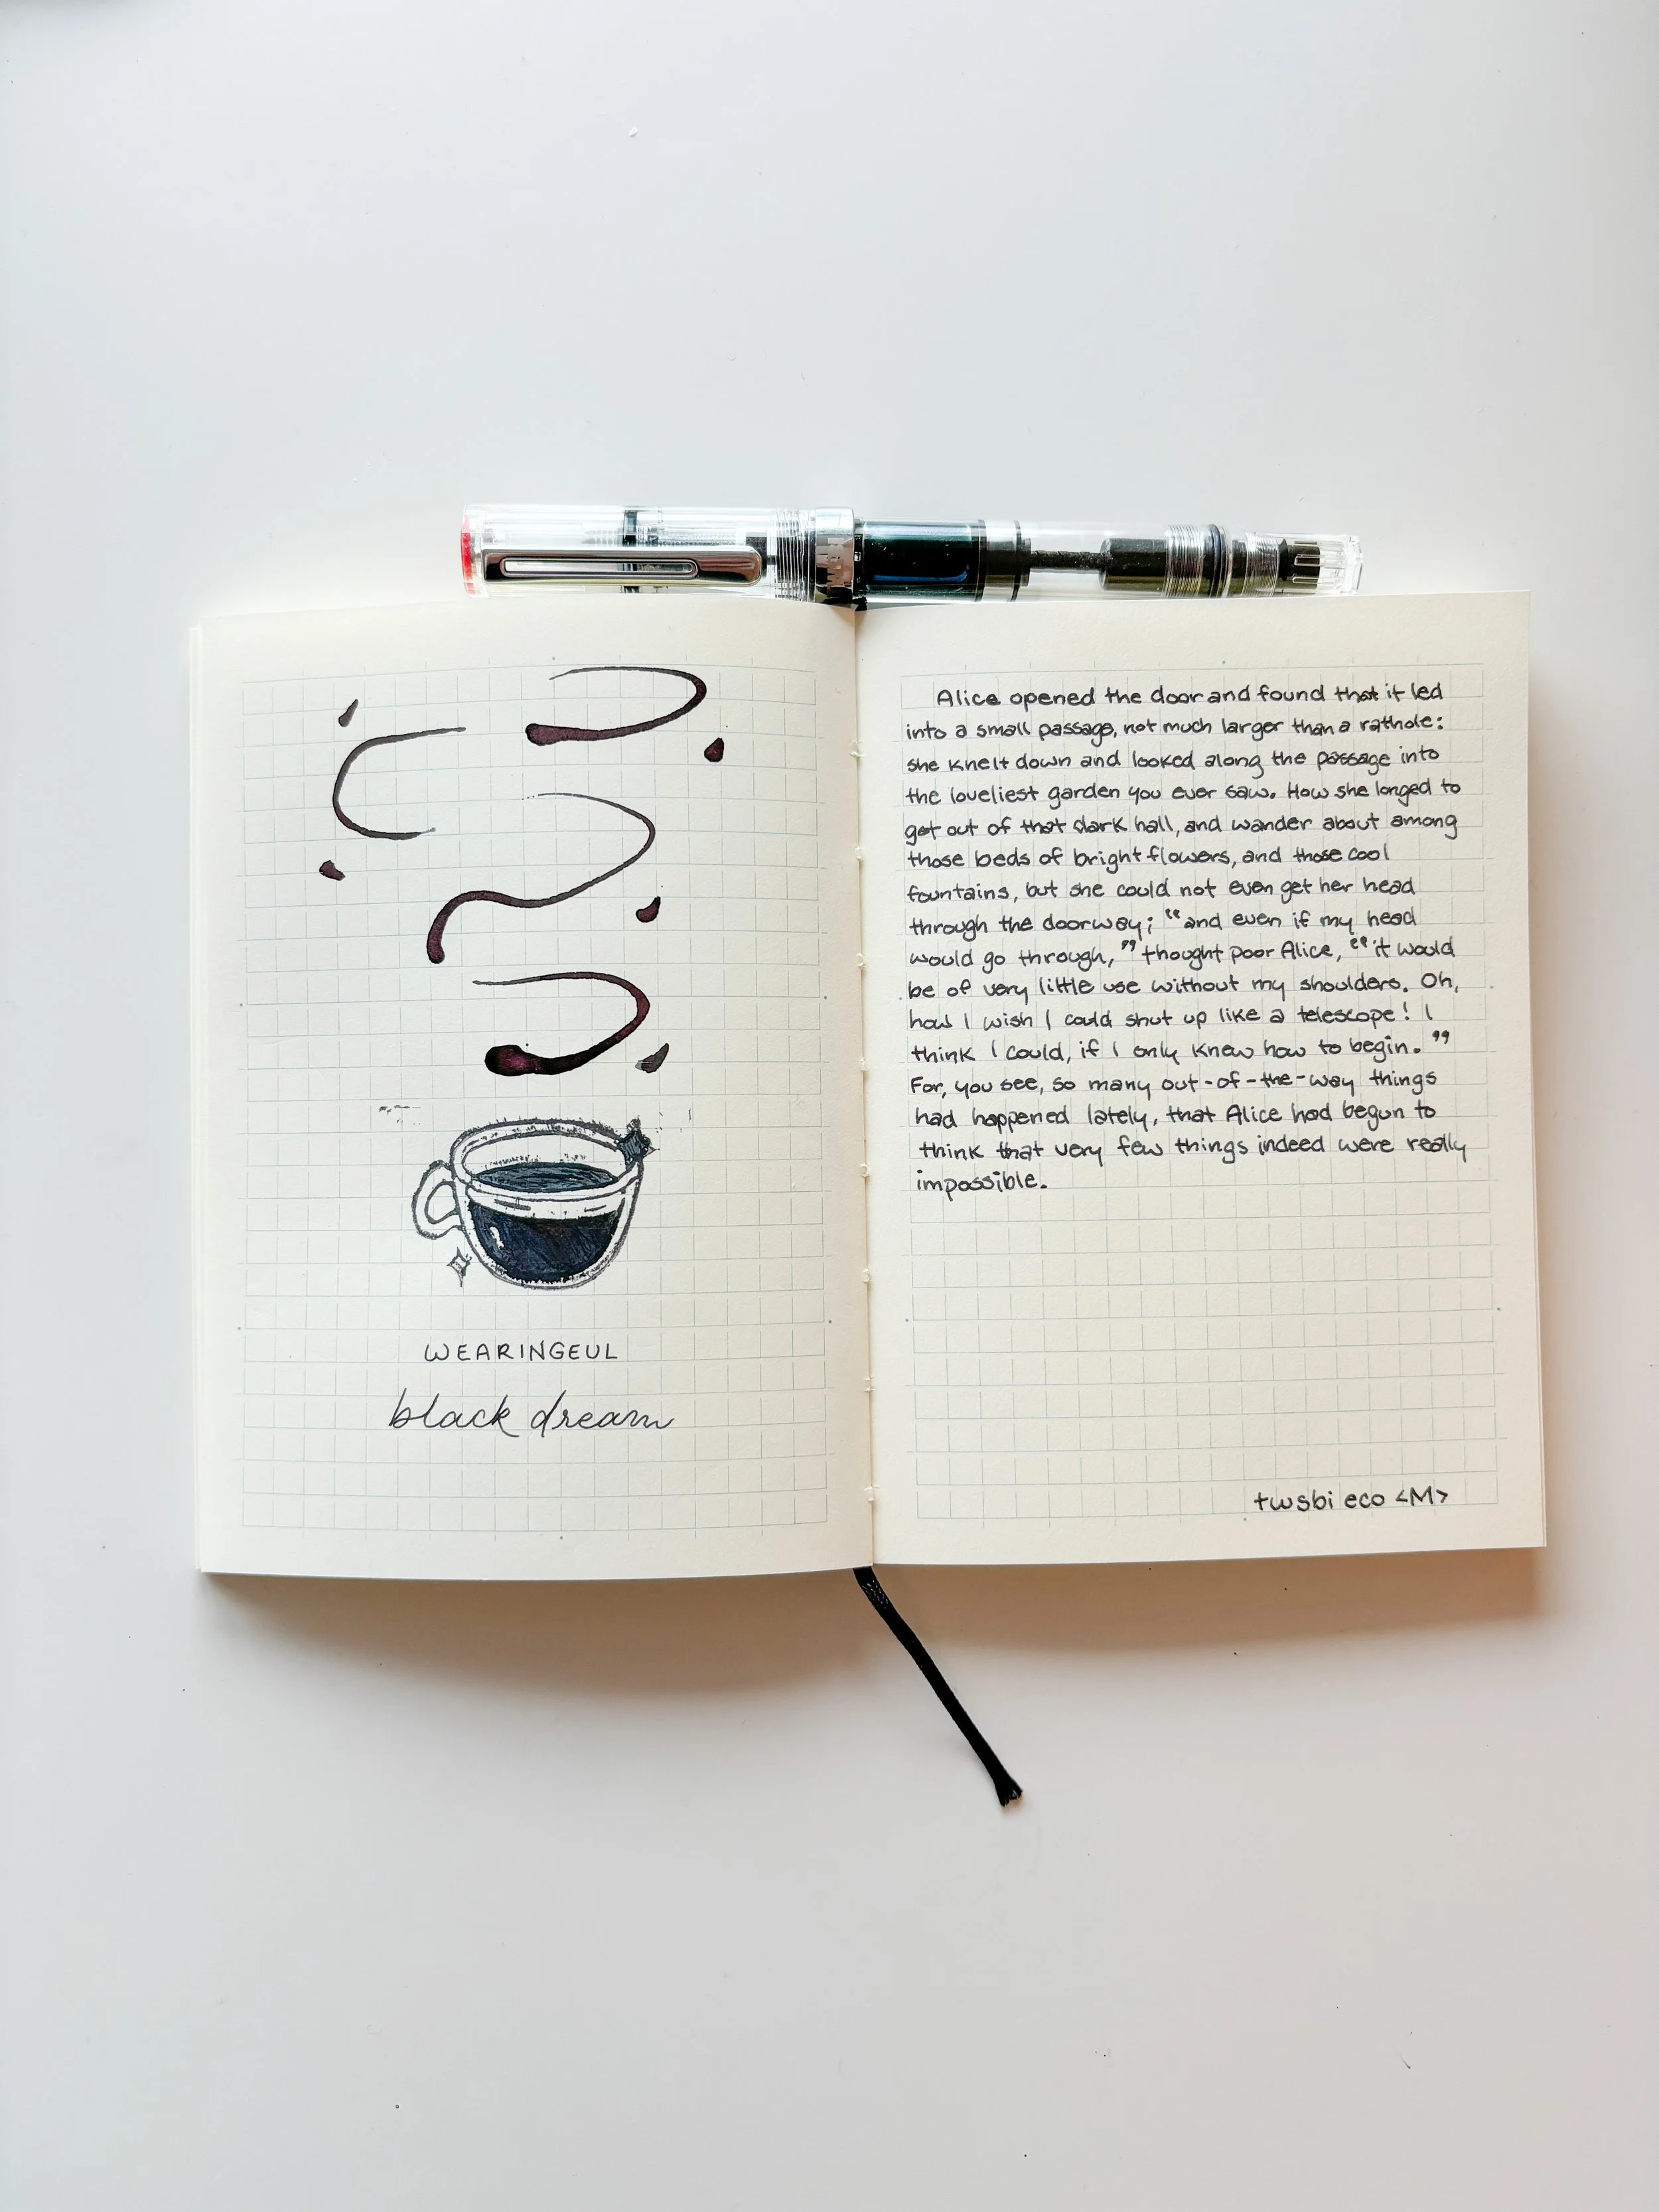 WEARINGEUL
black dream
Alice opened the door and found that it led
into a small passage, not much larger than a rathole:
she knelt down and looked along the passage into
the loveliest garden you ever saw. How she longed to
get out of that dark hall, and wander about among
those beds of bright flowers, and those cool
fountains, but she could not even get her head
through the doorway; "and even if my head
would go through," thought poor Alice, "it would
be of very little use without my shoulders. Oh,
how I wish I could shut up like a telescope! I
think I could, if I only knew how to begin."
For, you see, so many out-of-the-way things
had happened lately, that Alice had begun to
think that very few things indeed were really
impossible.
twsbi eco <M>